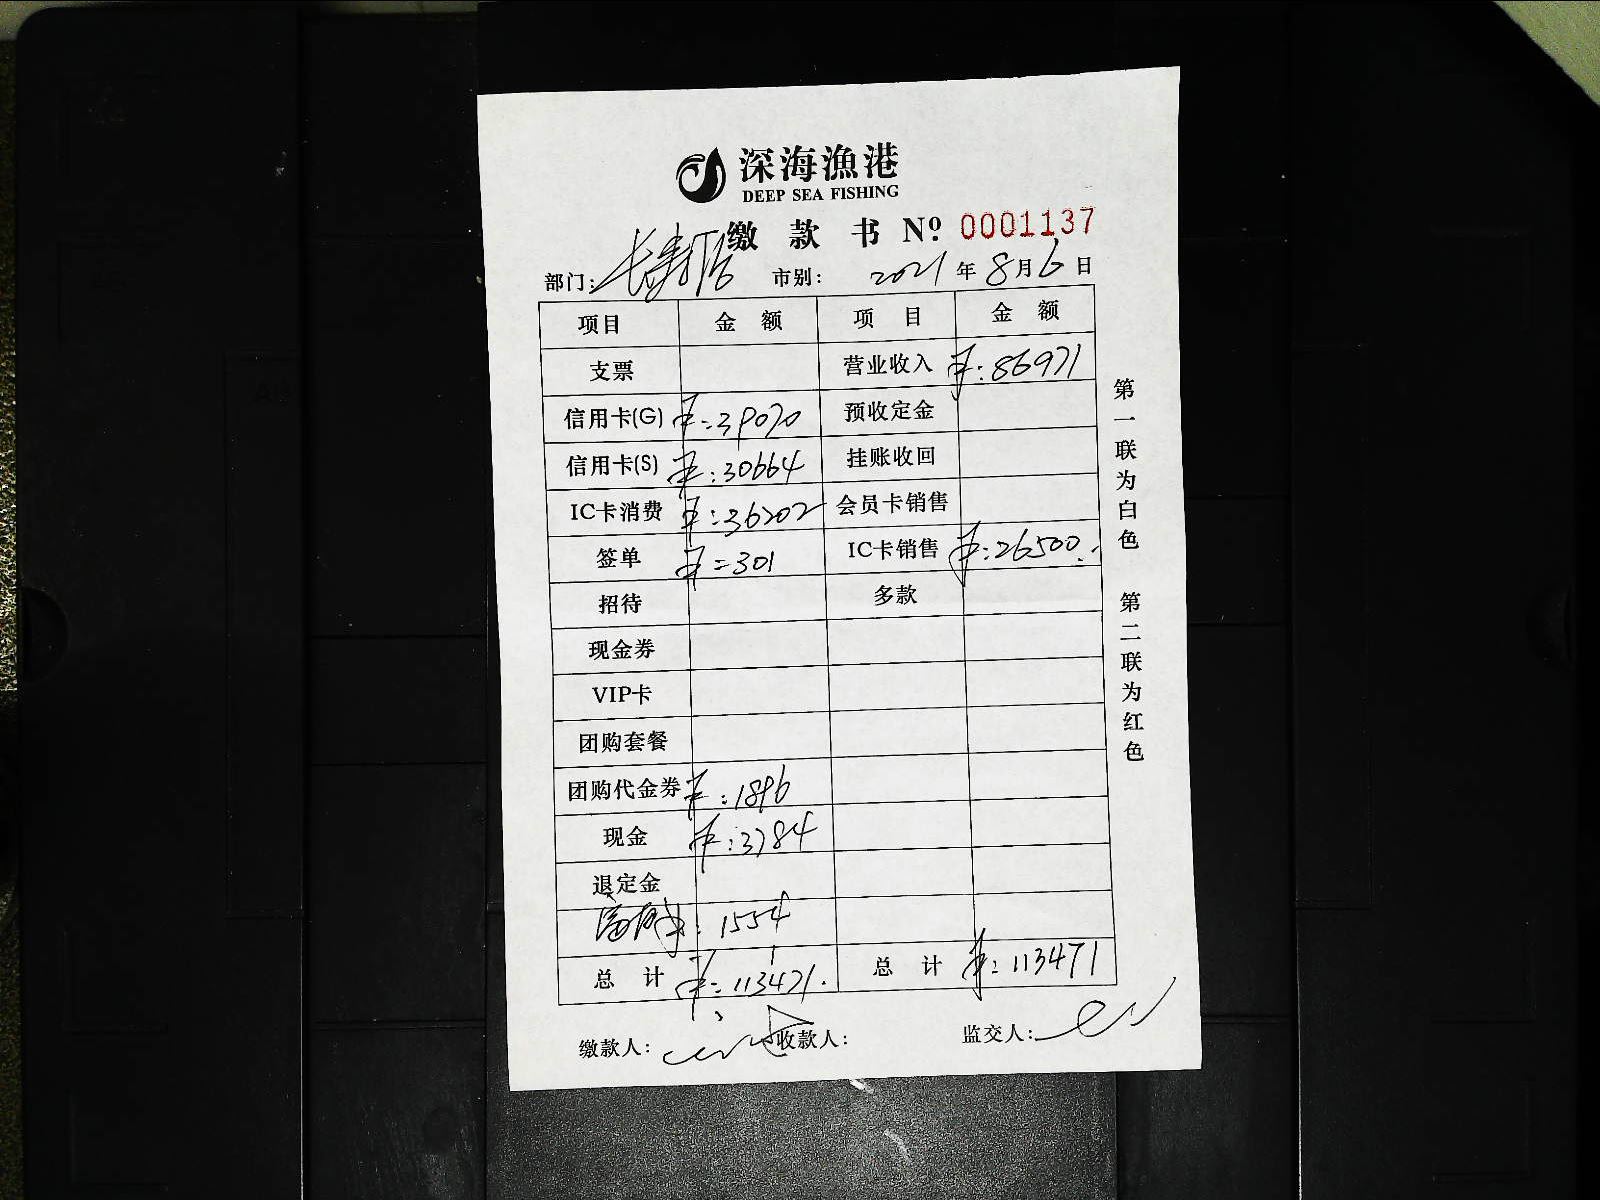 深海漁港
DEEP SEA FISHING
缴款书 Nº 0001137
部门: 长寿店 市别: 2021年8月6日
项目 金额 项目 金额
支票 营业收入 ¥:86971
信用卡(G) ¥:39070 预收定金
信用卡(S) ¥:30664 挂账收回
IC卡消费 ¥:36202 会员卡销售
签单 ¥:301 IC卡销售 ¥:26500
招待 多款
现金券
VIP卡
团购套餐
团购代金券 ¥:1896
现金 ¥:3784
退定金
: 1554
总计 ¥:113471. 总计 ¥:113471
缴款人: 收款人: 监交人:
第一联为白色 第二联为红色